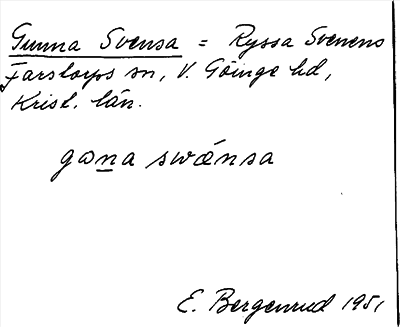 Gunna Svensa = Ryssa Svenens
Farstorps sn, V. Göinge hd,
Krist. län.
gɷna swænsa
E. Bergenrud 1951